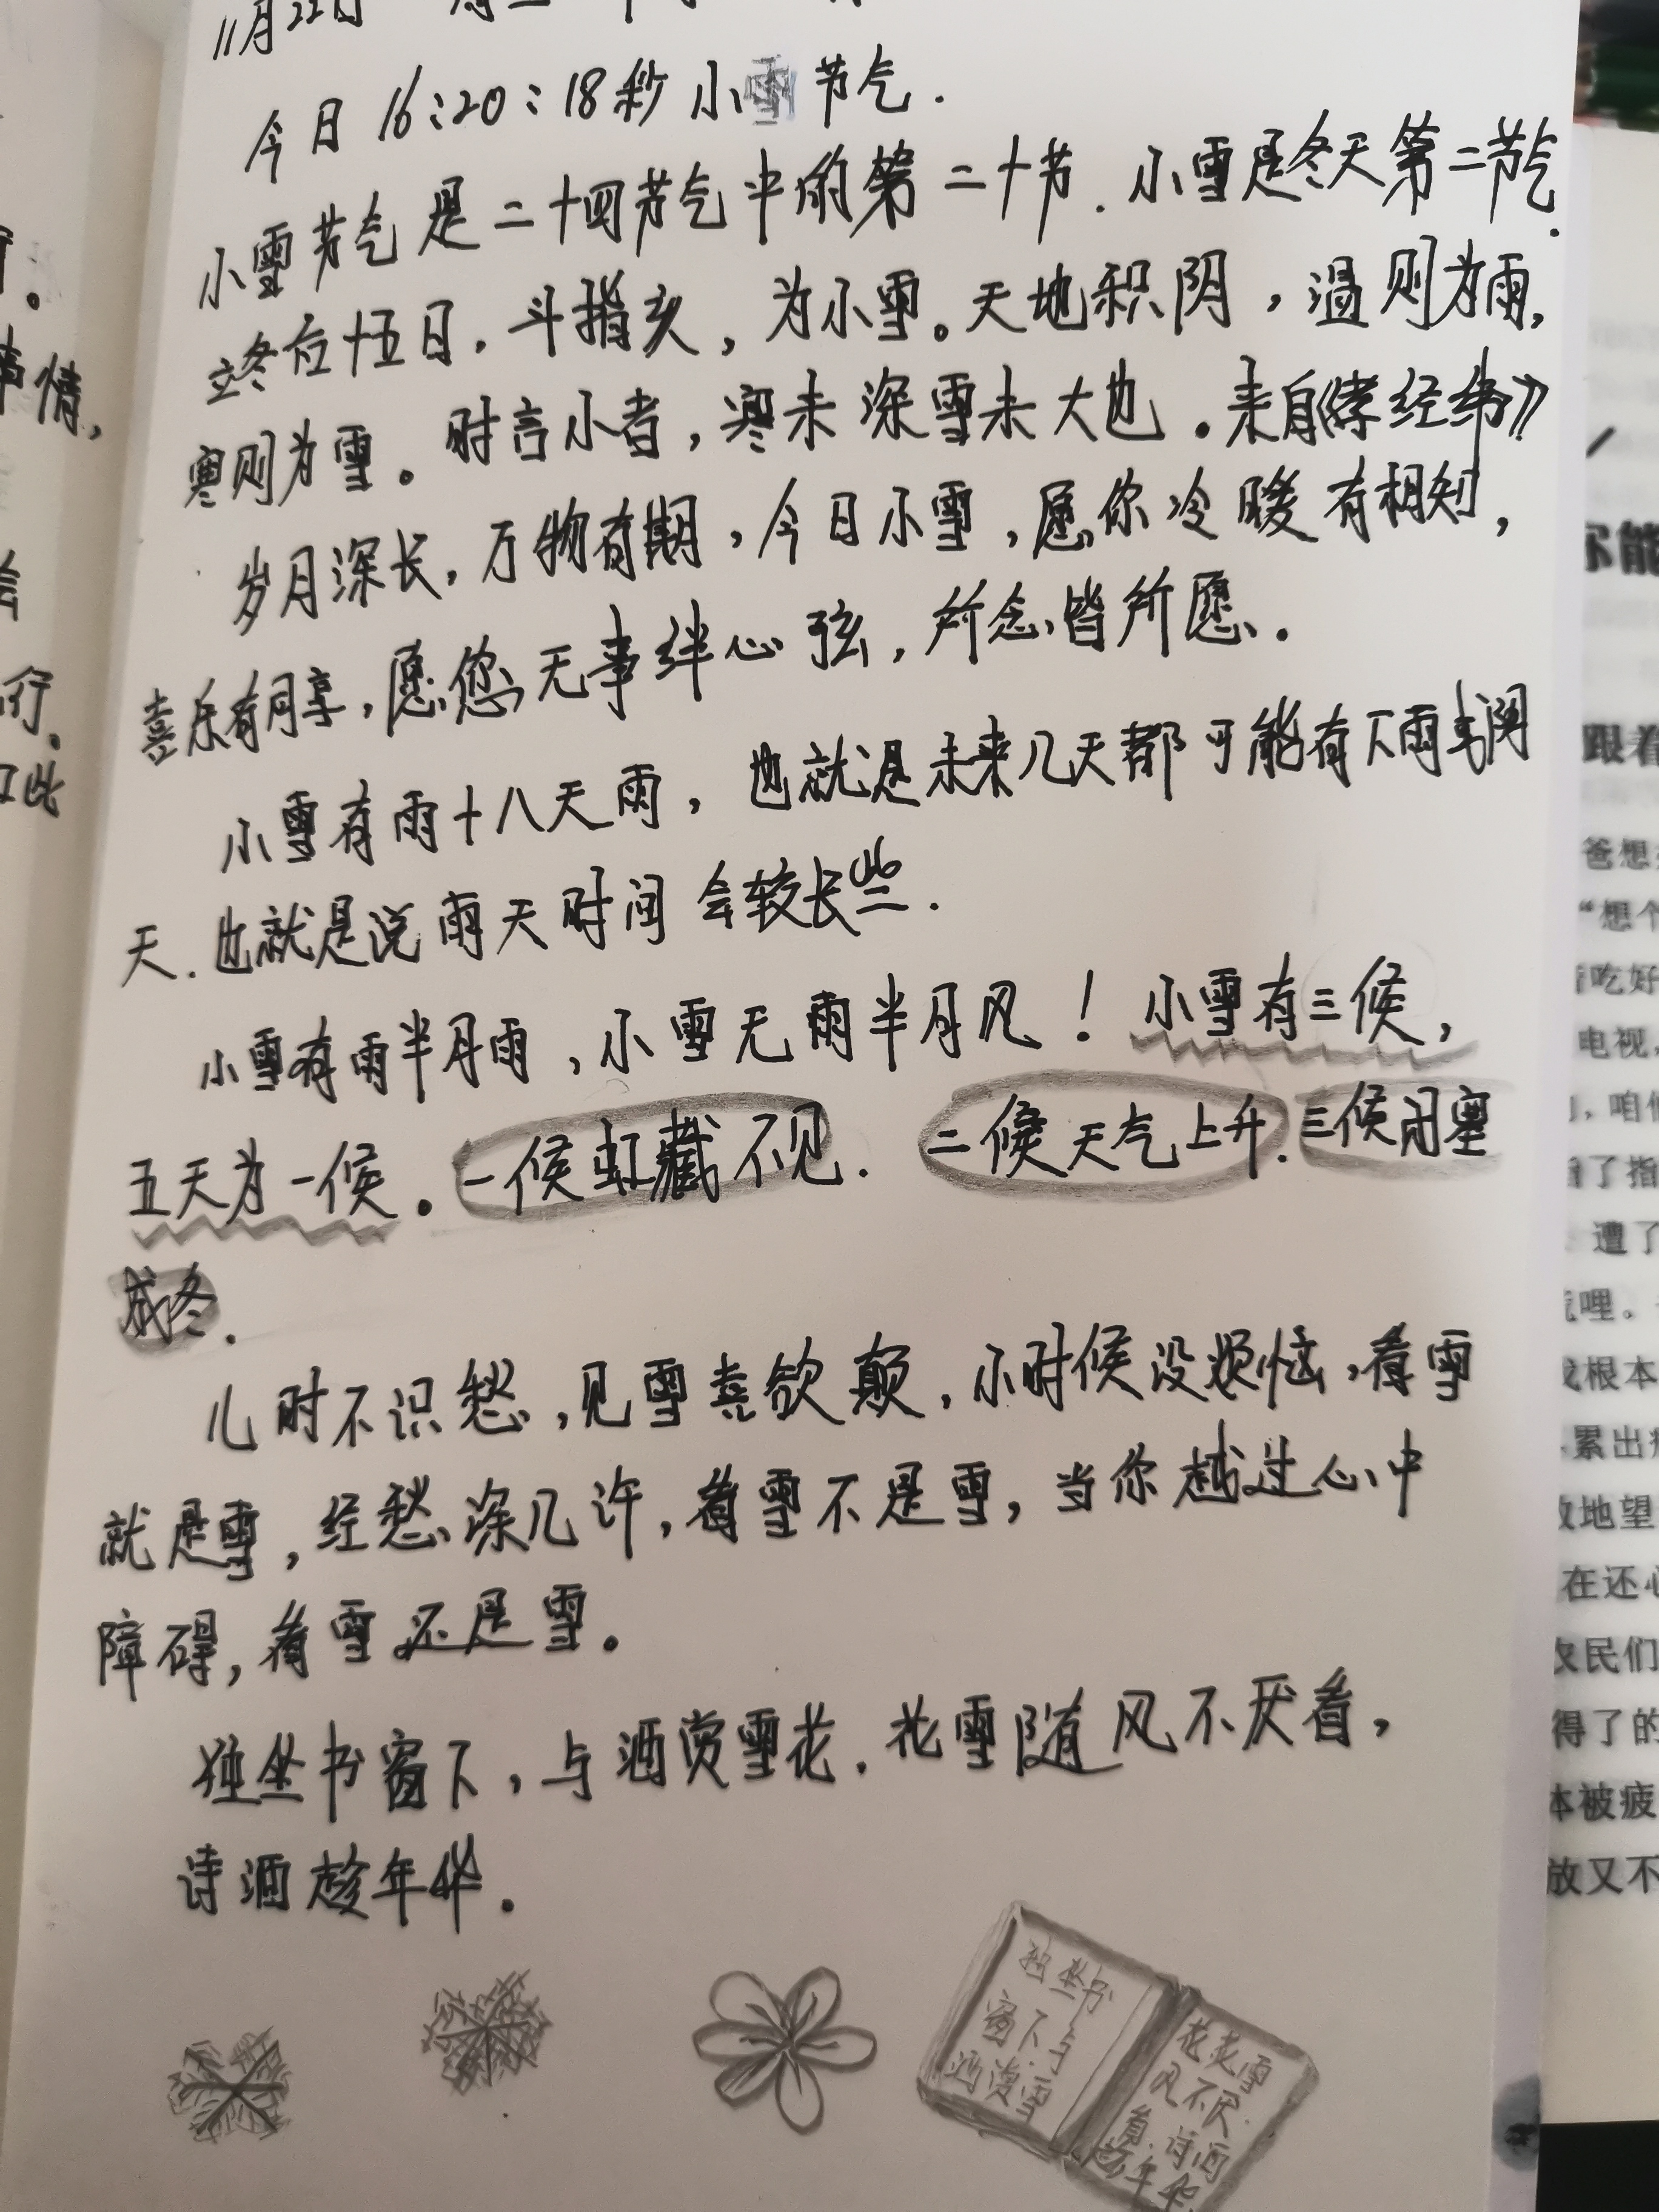 11月22日
今日16:20:18秒小雪节气.
小雪节气是二十四节气中的第二十节.小雪是冬天第二节气.
立冬后十五日,斗指亥,为小雪。天地积阴,温则为雨,
寒则为雪。时言小者,寒未深雪未大也。来自《孝经纬》
岁月深长,万物有期,今日小雪,愿你冷暖有相知,
喜乐有同享,愿您无事绊心弦,所念皆所愿.
小雪有雨十八天雨,也就是未来几天都可能有下雨或阴
天.也就是说雨天时间会较长些.
小雪有雨半月雨,小雪无雨半月风!小雪有三候,
五天为一候。一候虹藏不见.二候天气上升.三候闭塞
成冬.
儿时不识愁,见雪喜欲颠,小时候没烦恼,看雪
就是雪,经愁深几许,看雪不是雪,当你越过心中
障碍,看雪还是雪。
独坐书窗下,与酒赏雪花.花雪随风不厌看,
诗酒趁年华.
独坐书
窗下与
酒赏雪
花花雪
风不厌
看.诗酒
趁年华
事情,
行。
如此
你能
跟着
爸想
“想个
着吃好
电视,
,咱们
了指
遭了
哩。
我根本
累出
地望
在还心
农民们
得了的
本被疲
放又不